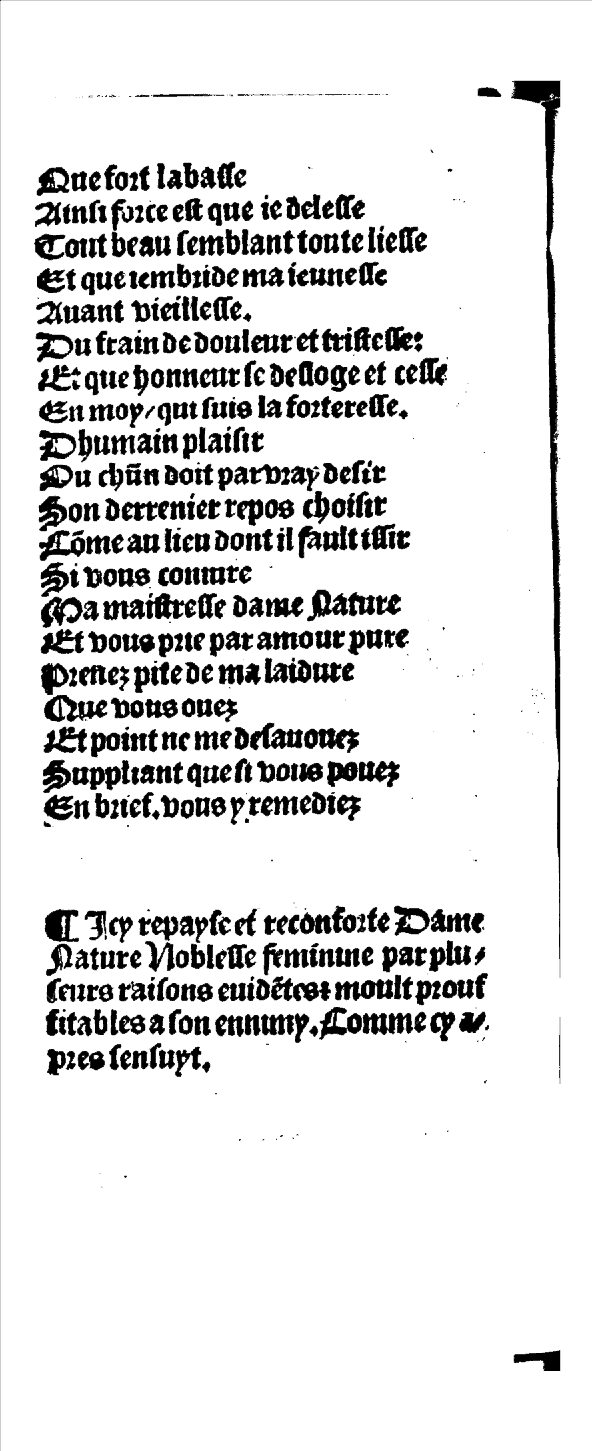 Que fort labaſſe
Ainſi force eſt que ie deleſſe
Tout beau ſemblant toute lieſſe
Et que iembride ma ieuneſſe
Auant vieilleſſe.
Du frain de douleur et triſteſſe:
Et que honneur ſe deſloge et ceſſe
En moy/ qui ſuis la fortereſſe.
Dhumain plaiſir
Ou chũn doit par vray deſir
Son derrenier repos choiſir
Cõme au lieu dont il fault iſſir
Si vous coniure
Ma maiſtreſſe dame Nature
Et vous prie par amour pure
Prenez pite de ma laidure
Que vous ouez
Et point ne me deſauouez
Suppliant que ſi vous pouez
En brief. vous y remediez
¶ Icy repayſe et reconforte Dame
Nature Nobleſſe feminine par plu/
ſeurs raiſons euidẽtes: moult prouf
fitables a ſon ennuny. Comme cy a/
pres ſenſuyt.